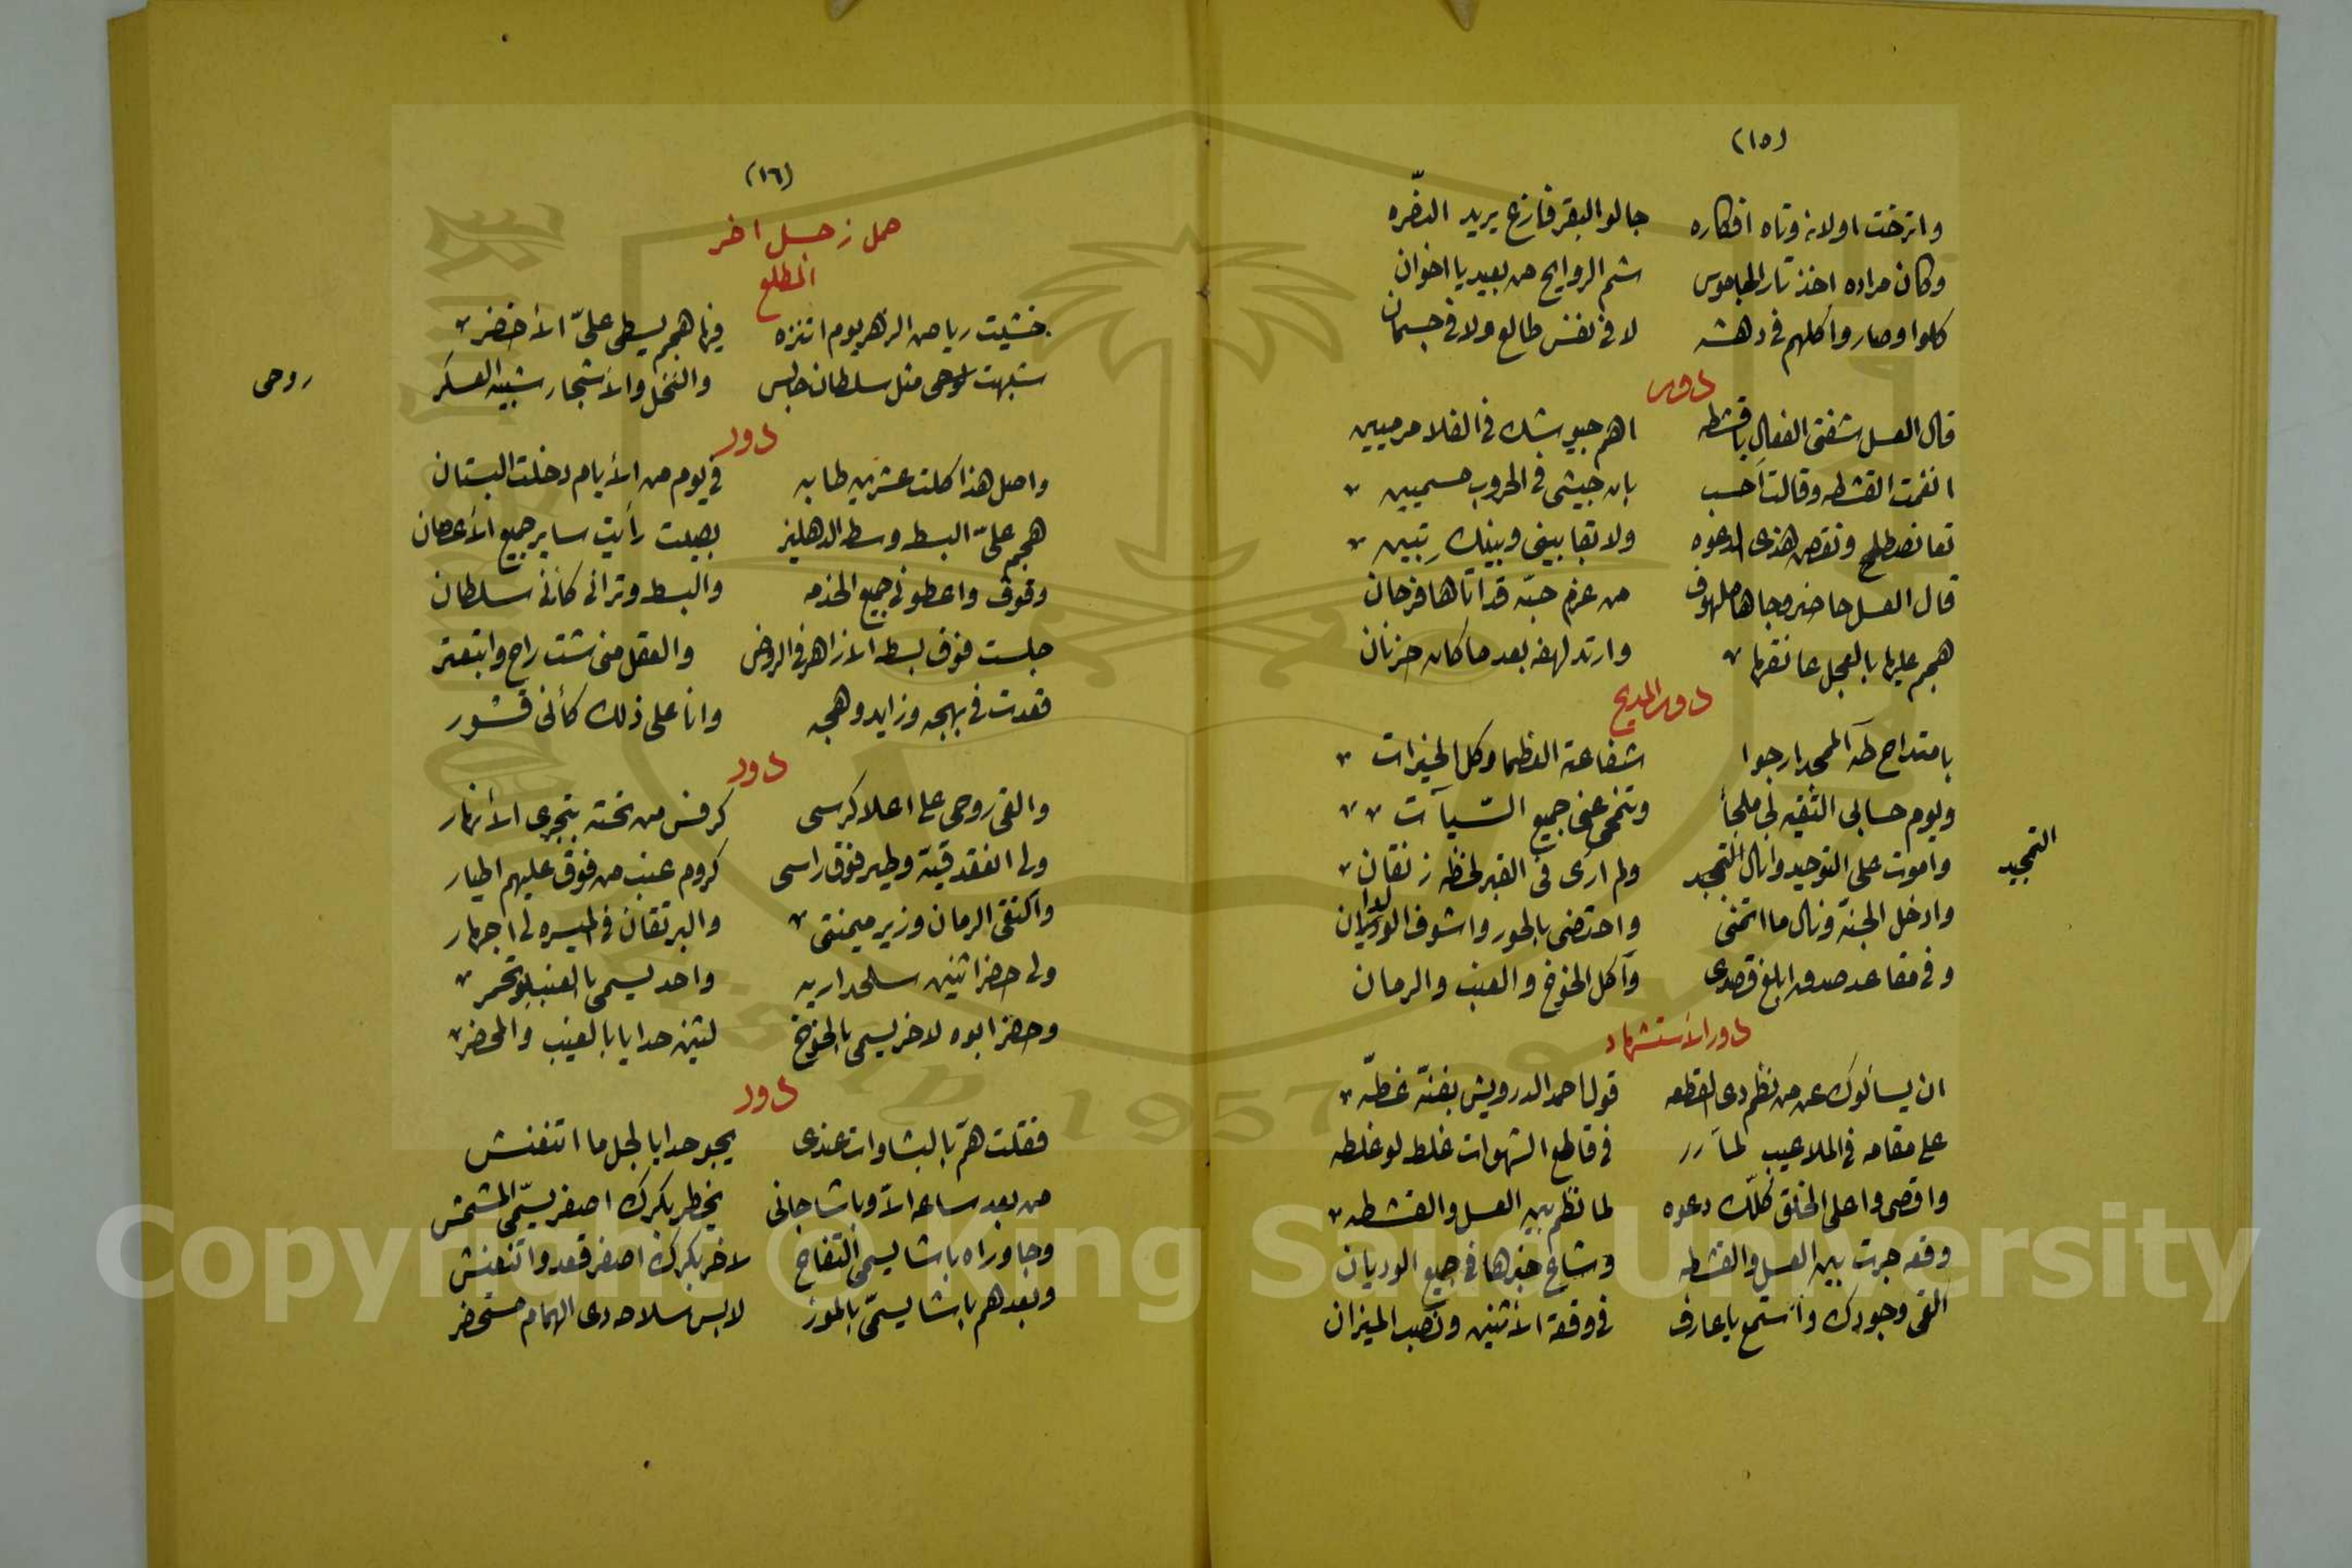 (١٥)
واترخت اولانه وتاه افكاره جا لو البقر فازع يريد النضّره
وكان مراده اخذ تار الجاموس شم الروايح من بعيد يا اخوان
كلوا وصار واكلهم فى دهشه لا فى نفس طالع ولا فى جسمان
دور
قال العسل شفتى الفعال يا قشطه اهم جيوشك فى الفلا مرميين
انغمت القشطه وقالت احسب بان جيشى فى الحروب حسميين
تعا نصطلح ونقص هذى الدعوه ولا بقا بينى وبينك تبيين
قال العسل حاضر وجاها ملهوف من عزم حبّه قد اتاها فرحان
هجم عليها بالعجل عانقها وارتد لهفه بعد ما كان حزنان
دور المديح
بامتداح طه الممجد ارجوا شفاعة العظما وكل الخيرات
ويوم حسابى التقيه لى ملجأ وتنمحى عنى جميع السّيآت
واموت على التوحيد وانال التمجيد ولم ارى فى القبر لحظه زنقان
التمجيد
وادخل الجنة ونال ما اتمنى واحتضى بالحور واشوف الولدان
وفى مقاعد صدق ابلغ قصدى وآكل الخوخ والعنب والرمان
دور الأستشهاد
ان يسألوك عن من نظم دى القطعه قول احمد الدرويش بفنّه غطّه
على مقامه فى الملاعيب لمآ فى قاطع الشهوات غلط لو غلطه
واقصى واعلى الخلق كلّك دعوه لما نظم بين العسل والقشطه
وقعه جرت بين العسل والقشطه وشاع خبرها فى جميع الوديان
القى وجودك واستمع يا عارف فى وقعة الأثنين ونصب الميزان
(١٦)
حمل زجل اخر
المطلع
خشيت رياض الزهر يوم اتنزه فيها هجم يسطى علىّ الأخضر
شبهت لوحى مثل سلطان جالس والنخل والأشجار شبيه العسكر
روحى
دور
واصل هذا كلت عشرين طابه فى يوم من الأيام دخلت البستان
هجم علىّ البسط وسط الدهليز بصيت رأيت ساير جميع الأغصان
وقوف واعطونى جميع الخدمه والبسط وترانى كأنى سلطان
جلست فوق بسط الازاهر فى الروض والعقل منى شت راح وابتعتر
قعدت فى بهجه وزايد وهجه وانا على ذلك كأنى قسّور
دور
والقى روحى على اعلا كرسى كرفس من تحته بتجرى الأنهار
ولى انعقد قبّة وطير فوق راسى كروم عنب من فوق عليهم اطيار
واكتفى الرمان وزير ميمنتى والبرتقان فى الميسره لى اجهار
ولى حضر اثنين سلحداريه واحد يسمى بالعنب لو تحمر
وحضر ابوه لاخر يسمى بالخوخ لتنين حدايا بالعنب والمحضر
دور
فقلت هم بالبشاوات عندى يجو حدايا لجل ما اتنغنش
من بعد ساعه الا وباشا جانى يخطر بكرك اصفر يسمّى المشمش
وجا وراه باشا يسمى التفاح لاخر بكرك اصفر قعد واتنغنش
وبعدهم باشا يسمّى بالموز لابس سلاحه دى الهمام مستحضر